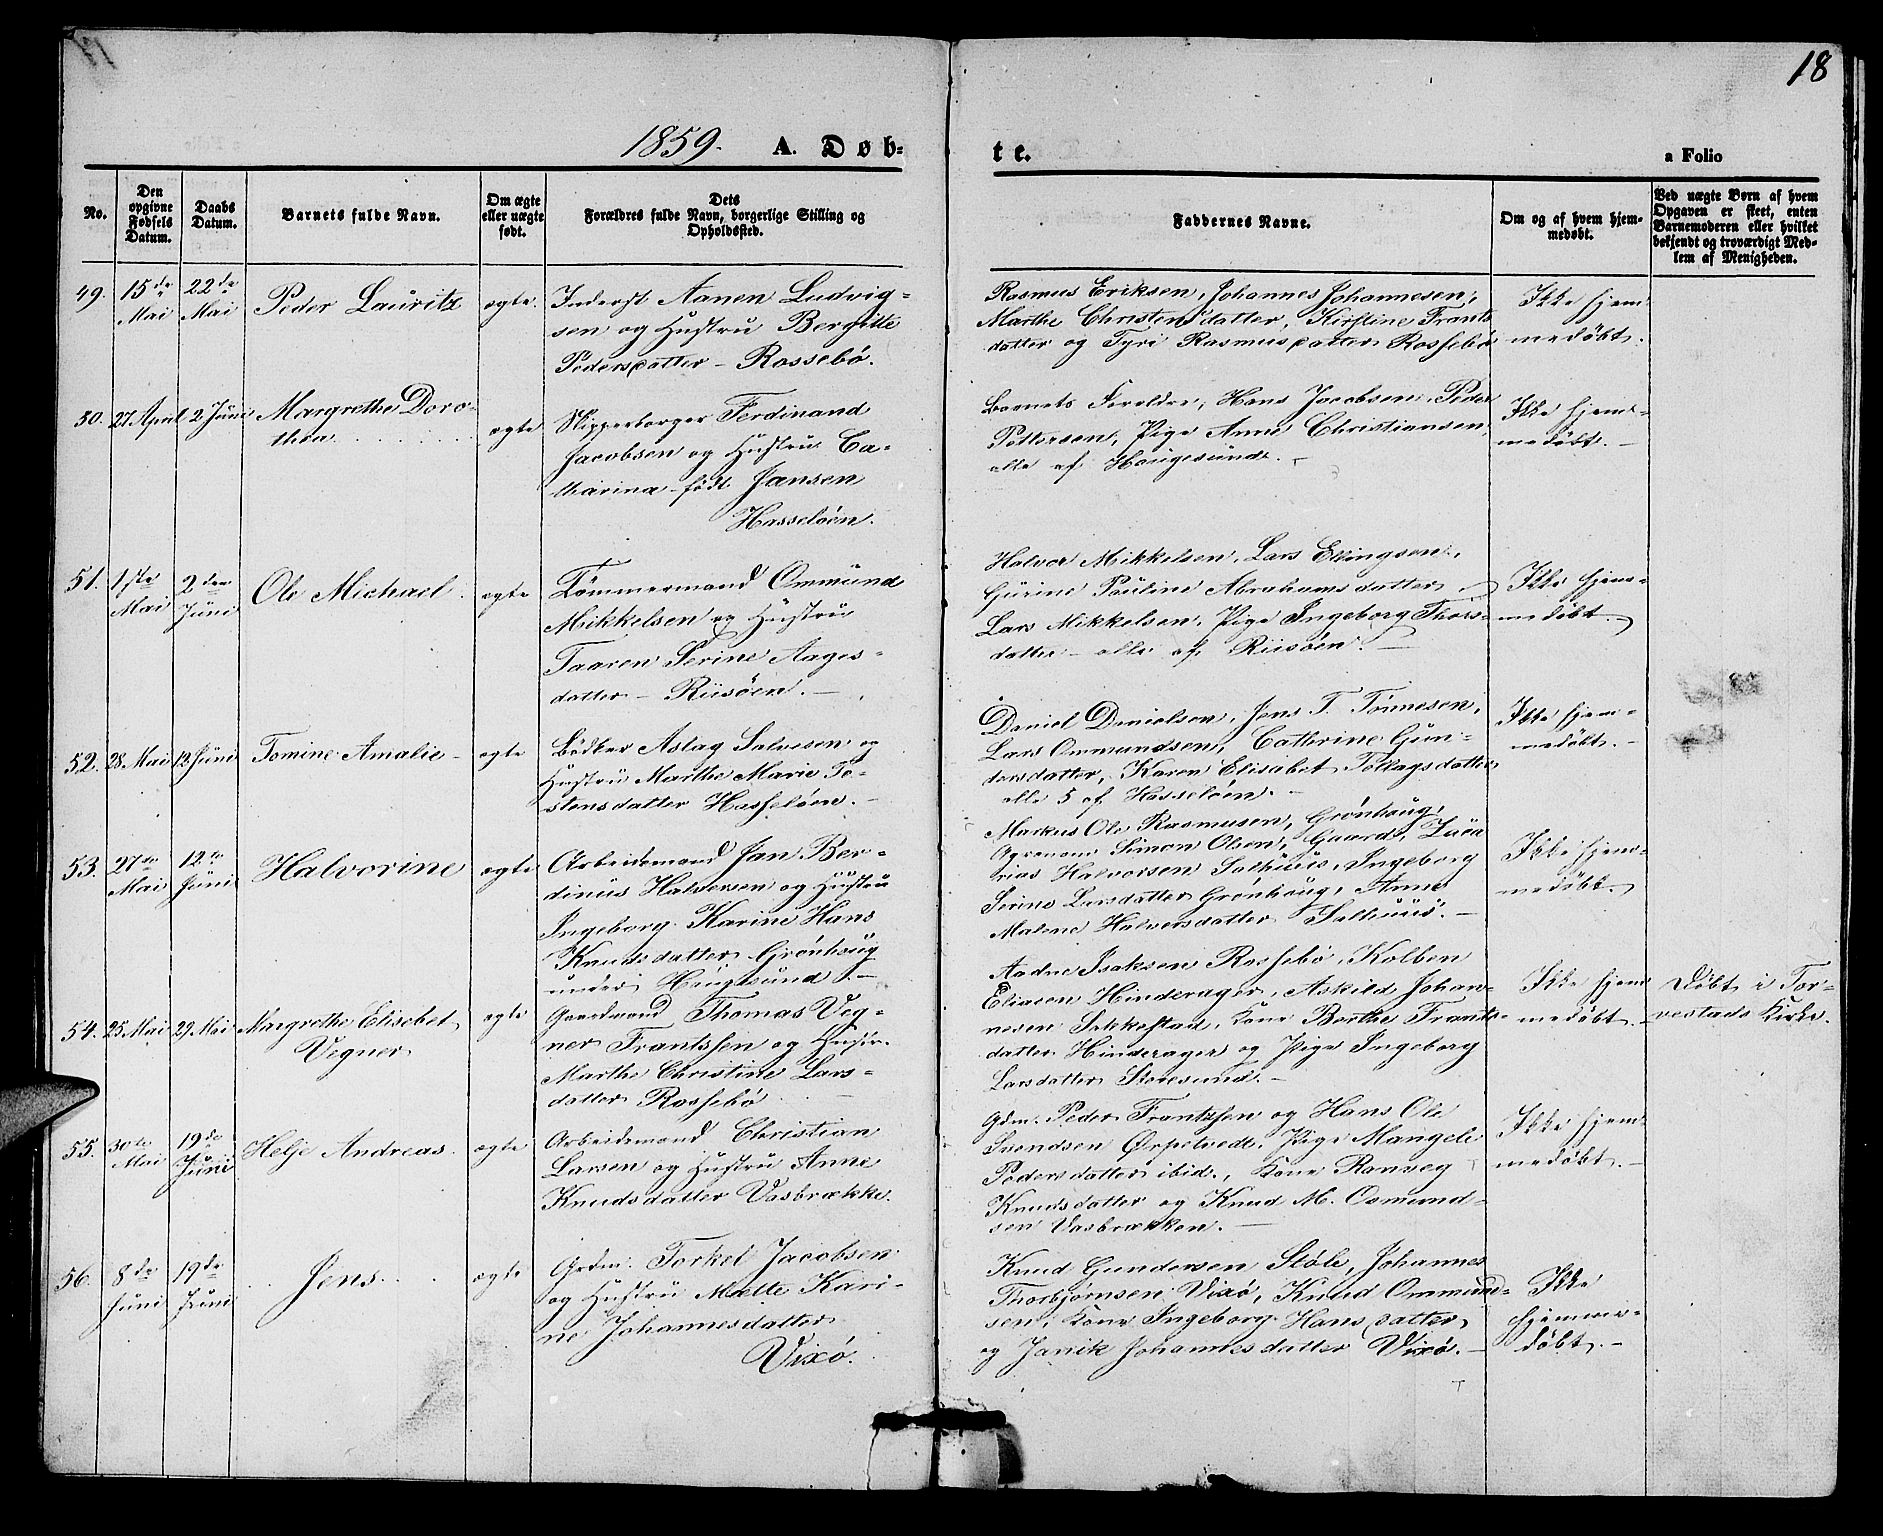 18
1859. A. Døb=
te.
a Folio
No.
Den
opgivne
Fødsels
Datum.
Daabs
Datum.
Barnets fulde Navn.
Om ægte
eller uægte
født.
Dets
Forældres fulde Navn, borgerlige Stilling og
Opholdssted.
Faddernes Navne.
Om og af hvem hjem-
medøbt.
Ved uægte Børn af hvem
Opgaven er skeet, enten
Barnemoderen eller hvilket
bekjendt og troværdigt Med-
lem af Menigheden.
49.
15de
Mai
22de
Mai
Peder Lauritz
ægte.
Inderst Aanen Ludvig-
sen og Hustru Bergitte
Pedersdatter - Rossebø.
Rasmus Eriksen, Johannes Johannesen,
Marthe Christensdatter, Kirstine Frants
datter og Tyri Rasmusdatter Rossebø
Ikke hjem-
medøbt.
50.
27 April
2 Juni
Margrethe Doro-
thea
ægte
Skipperborger Ferdinand
Jacobsen og Hustru Ca-
tharina født Jansen
Hasseløen.
Barnets Forældre, Hans Jacobsen, Peder
Pettersen, Pige Anne Christiansen,
alle af Haugesund. -
Ikke hjem-
medøbt. -
51.
1ste
Mai
2den
Juni
Ole Michael
ægte
Tømmermand Ommund
Mikkelsen og Hustru
Taaren Serine Aages-
datter - Riisøen. -
Halvor Mikkelsen, Lars Ellingsen,
Gurine Pauline Abrahamsdatter
Lars Mikkelsen, Pige Ingeborg Thors-
datter - alle af Riisøen. -
Ikke hjem-
medøbt.
52.
28 Mai
12 Juni
Tomine Amalie -
ægte
Bødker Aslag Salvesen og
Hustru Marthe Marie To-
stensdatter Hasseløen. -
Daniel Danielsen, Jens T. Tønnesen,
Lars Ommundsen, Cathrine Gun-
dersdatter, Karen Elisabet Tollagsdatter
alle 5 af Hasseløen. -
Ikke hjem-
medøbt. -
53.
27de
Mai
12te
Juni
Halvorine
ægte
Arbeidsmand Jan Ber-
dinus Halvorsen og Hustru
Ingeborg Karine Hans
Knudsdatter Grønhaug
under Haugesund. -
Markus Ole Rasmusen, Grønhaug,
Simon Olsen, Gaard, Zaca
rias Halvorsen Salhuus, Ingeborg
Serine Larsdatter Grønhaug, Anne
Malene Halvorsdatter Salhuus. -
Ikke hjem-
medøbt.
54.
25 Mai
29 Mai
Margrethe Elisebet
Vegner
ægte
Gaardmand Thomas Veg-
ner Frantzsen og Hustr.
Marthe Christine Lars-
datter Rossebø
Aadne Isaksen Rossebø, Kolben
Eliasen Hinderager, Askild Johan-
nesen Sakkestad, Kone Berthe Frants-
datter Hinderager og Pige Ingeborg
Larsdatter Storesund. -
Ikke hjem
medøbt. -
Døbt i Tor-
vestads Kirke.
55.
30te
Mai
19de
Juni
Helje Andreas.
ægte
Arbeidsmand Christian
Larsen og Hustru Anne
Knudsdatter Vasbrække.
Gdm. Peder Frantzsen og Hans Ole
Svendsen Ørpetvedt, Pige Mangele
Pedersdatter ibid., Kone Ranveg
Knudsdatter og Knud M. Osmund-
sen Vasbrækken. -
Ikke hjem-
medøbt. -
56.
8de
Juni
19de
Juni
Jens
ægte
Grdm. Torkel Jacobsen
og Hustru Mætte Kari-
ne Johannesdatter
Vixø.
Knud Gundersen Støle, Johannes
Thorbjørnsen Vixø, Knud Ommund-
sen, Kone Ingeborg Hansdatter,
og Janik Johannesdatter Vixø. -
Ikke
hjemme-
døbt. -